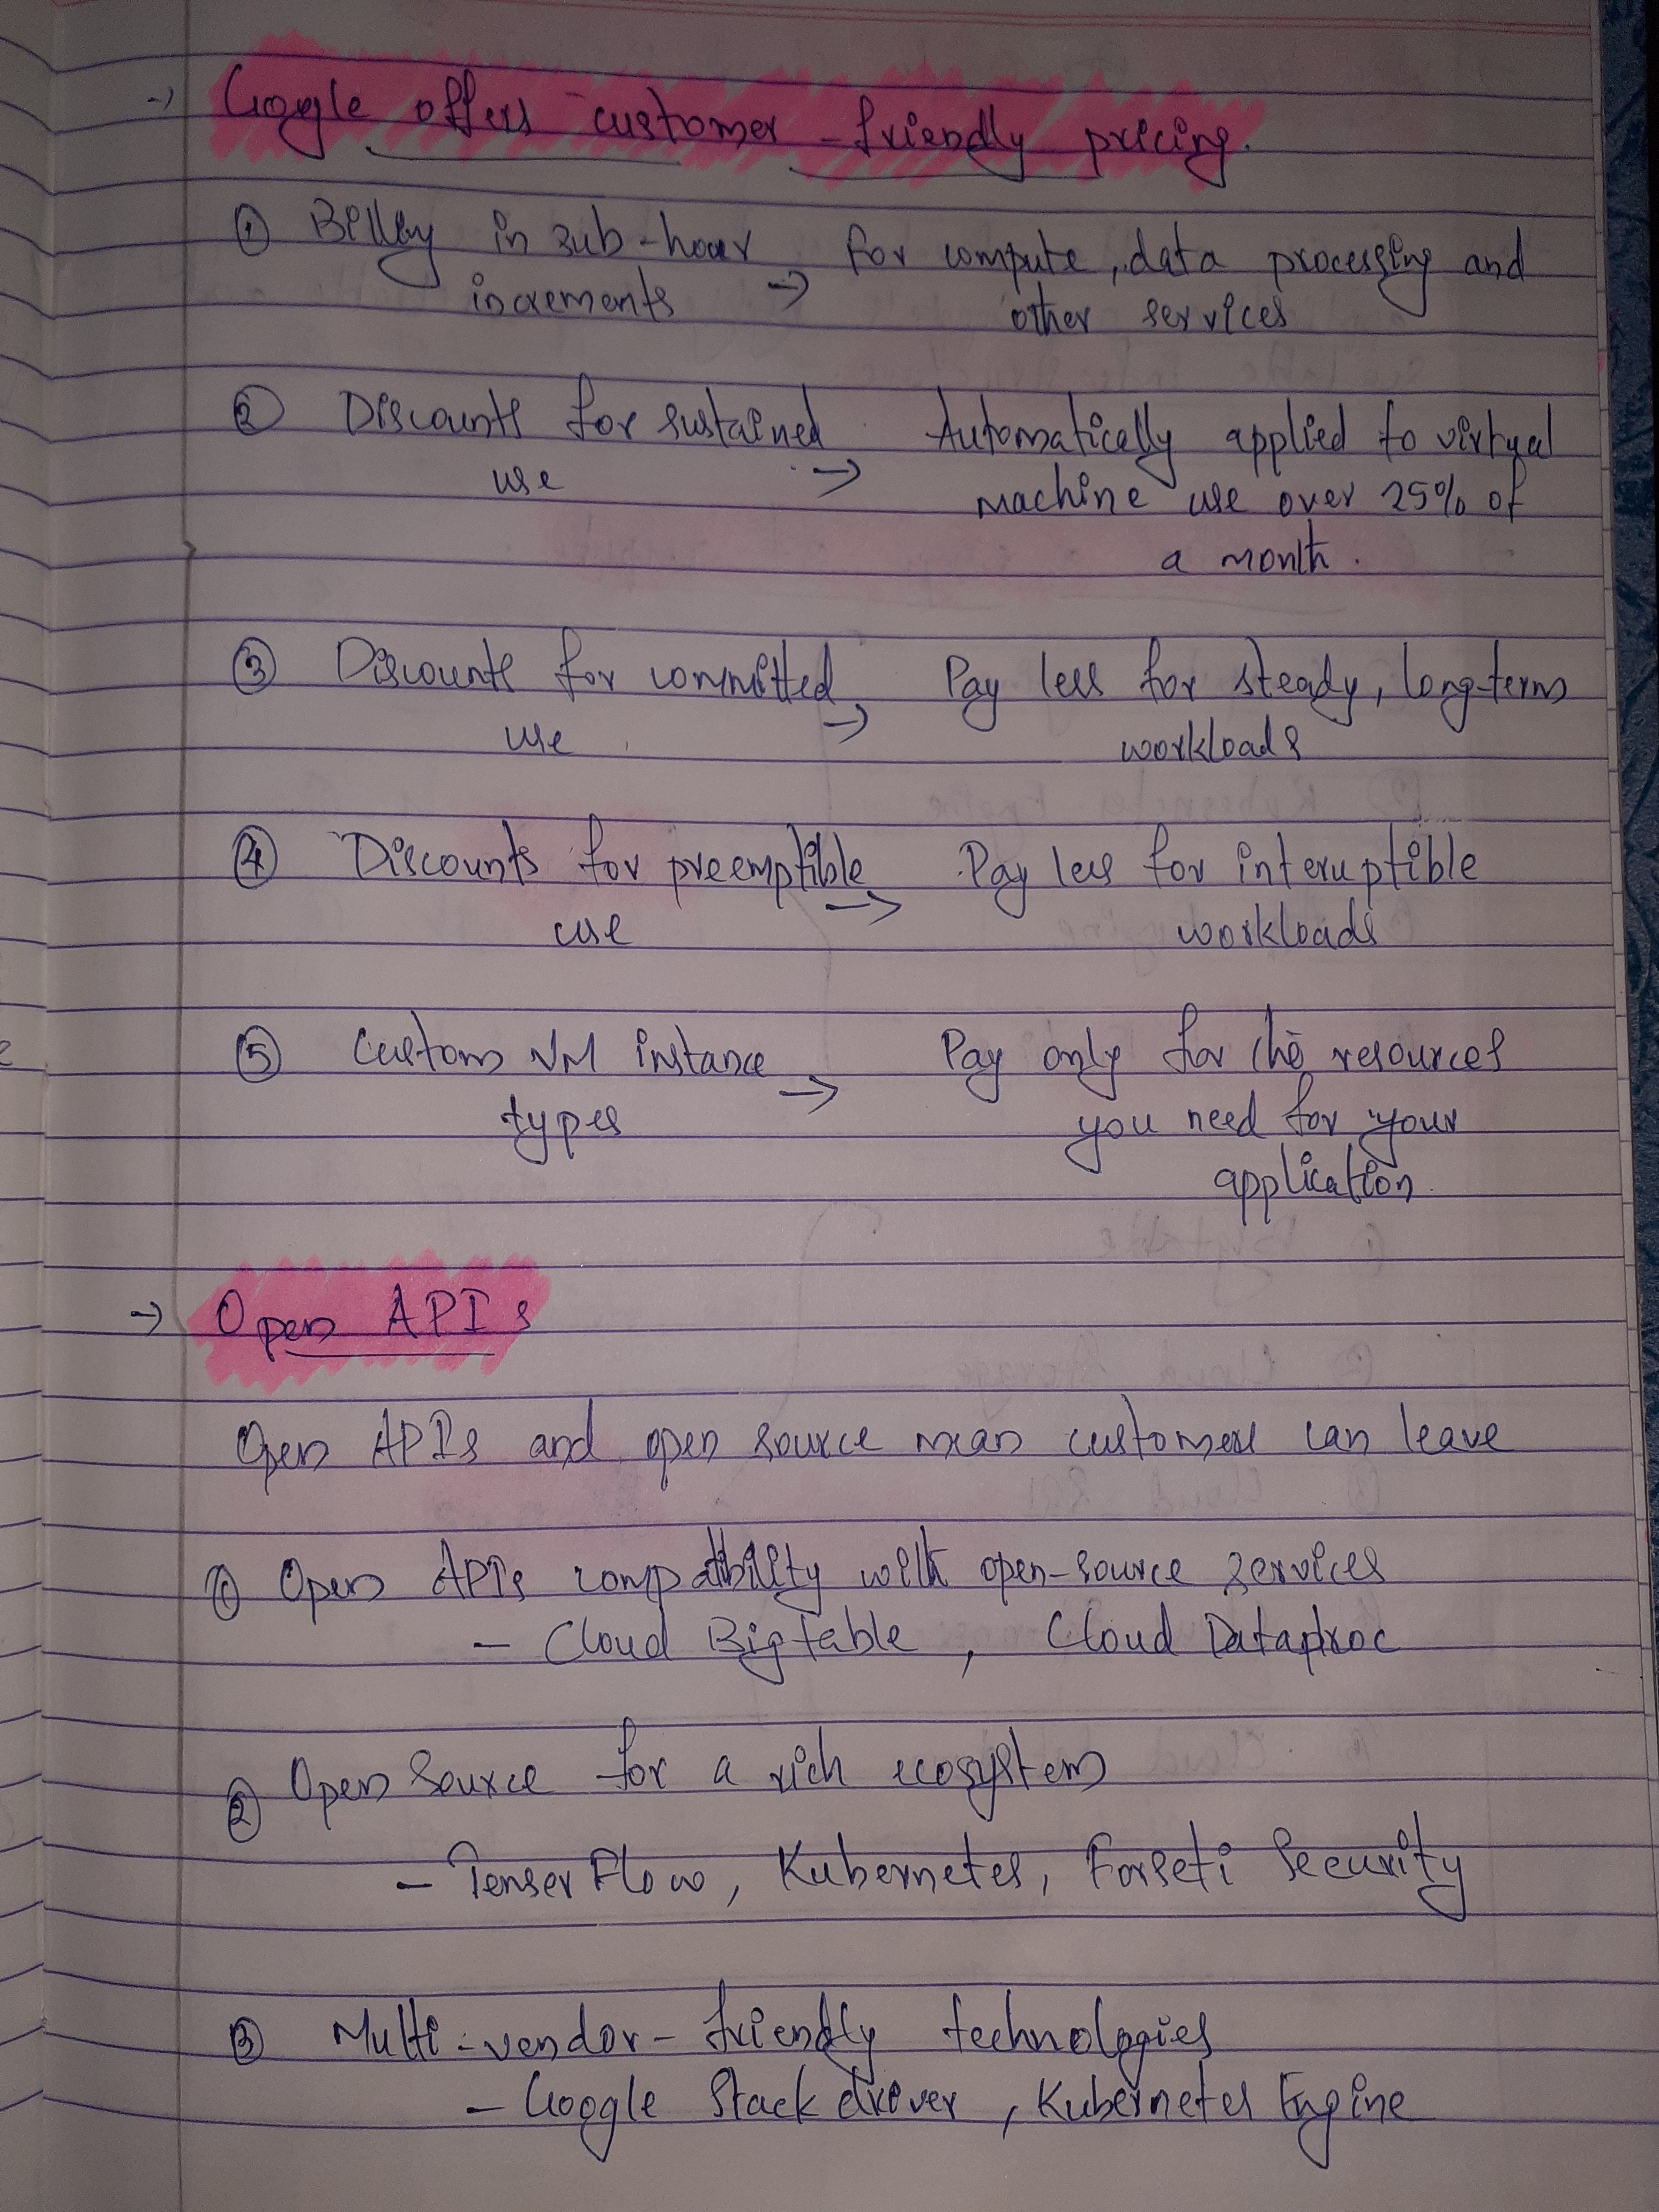 → Google offers customer-friendly pricing.
① Billing in sub-hour for compute, data processing and
increments → other services
② Discounts for sustained Automatically applied to virtual
use → machine use over 25% of
a month.
③ Discounts for committed Pay less for steady, long-term
use → workloads
④ Discounts for preemptible Pay less for interuptible
use → workloads
⑤ Custom VM instance Pay only for the resources
types → you need for your
application.
→ Open APIs
Open APIs and open source mean customers can leave
① Open APIs compatibility with open-source services
- Cloud Bigtable, Cloud Dataproc
② Open Source for a rich ecosystem
- TenserFlow, Kubernetes, Forseti Security
③ Multi-vendor-friendly technologies
- Google Stackdriver, Kubernetes Engine